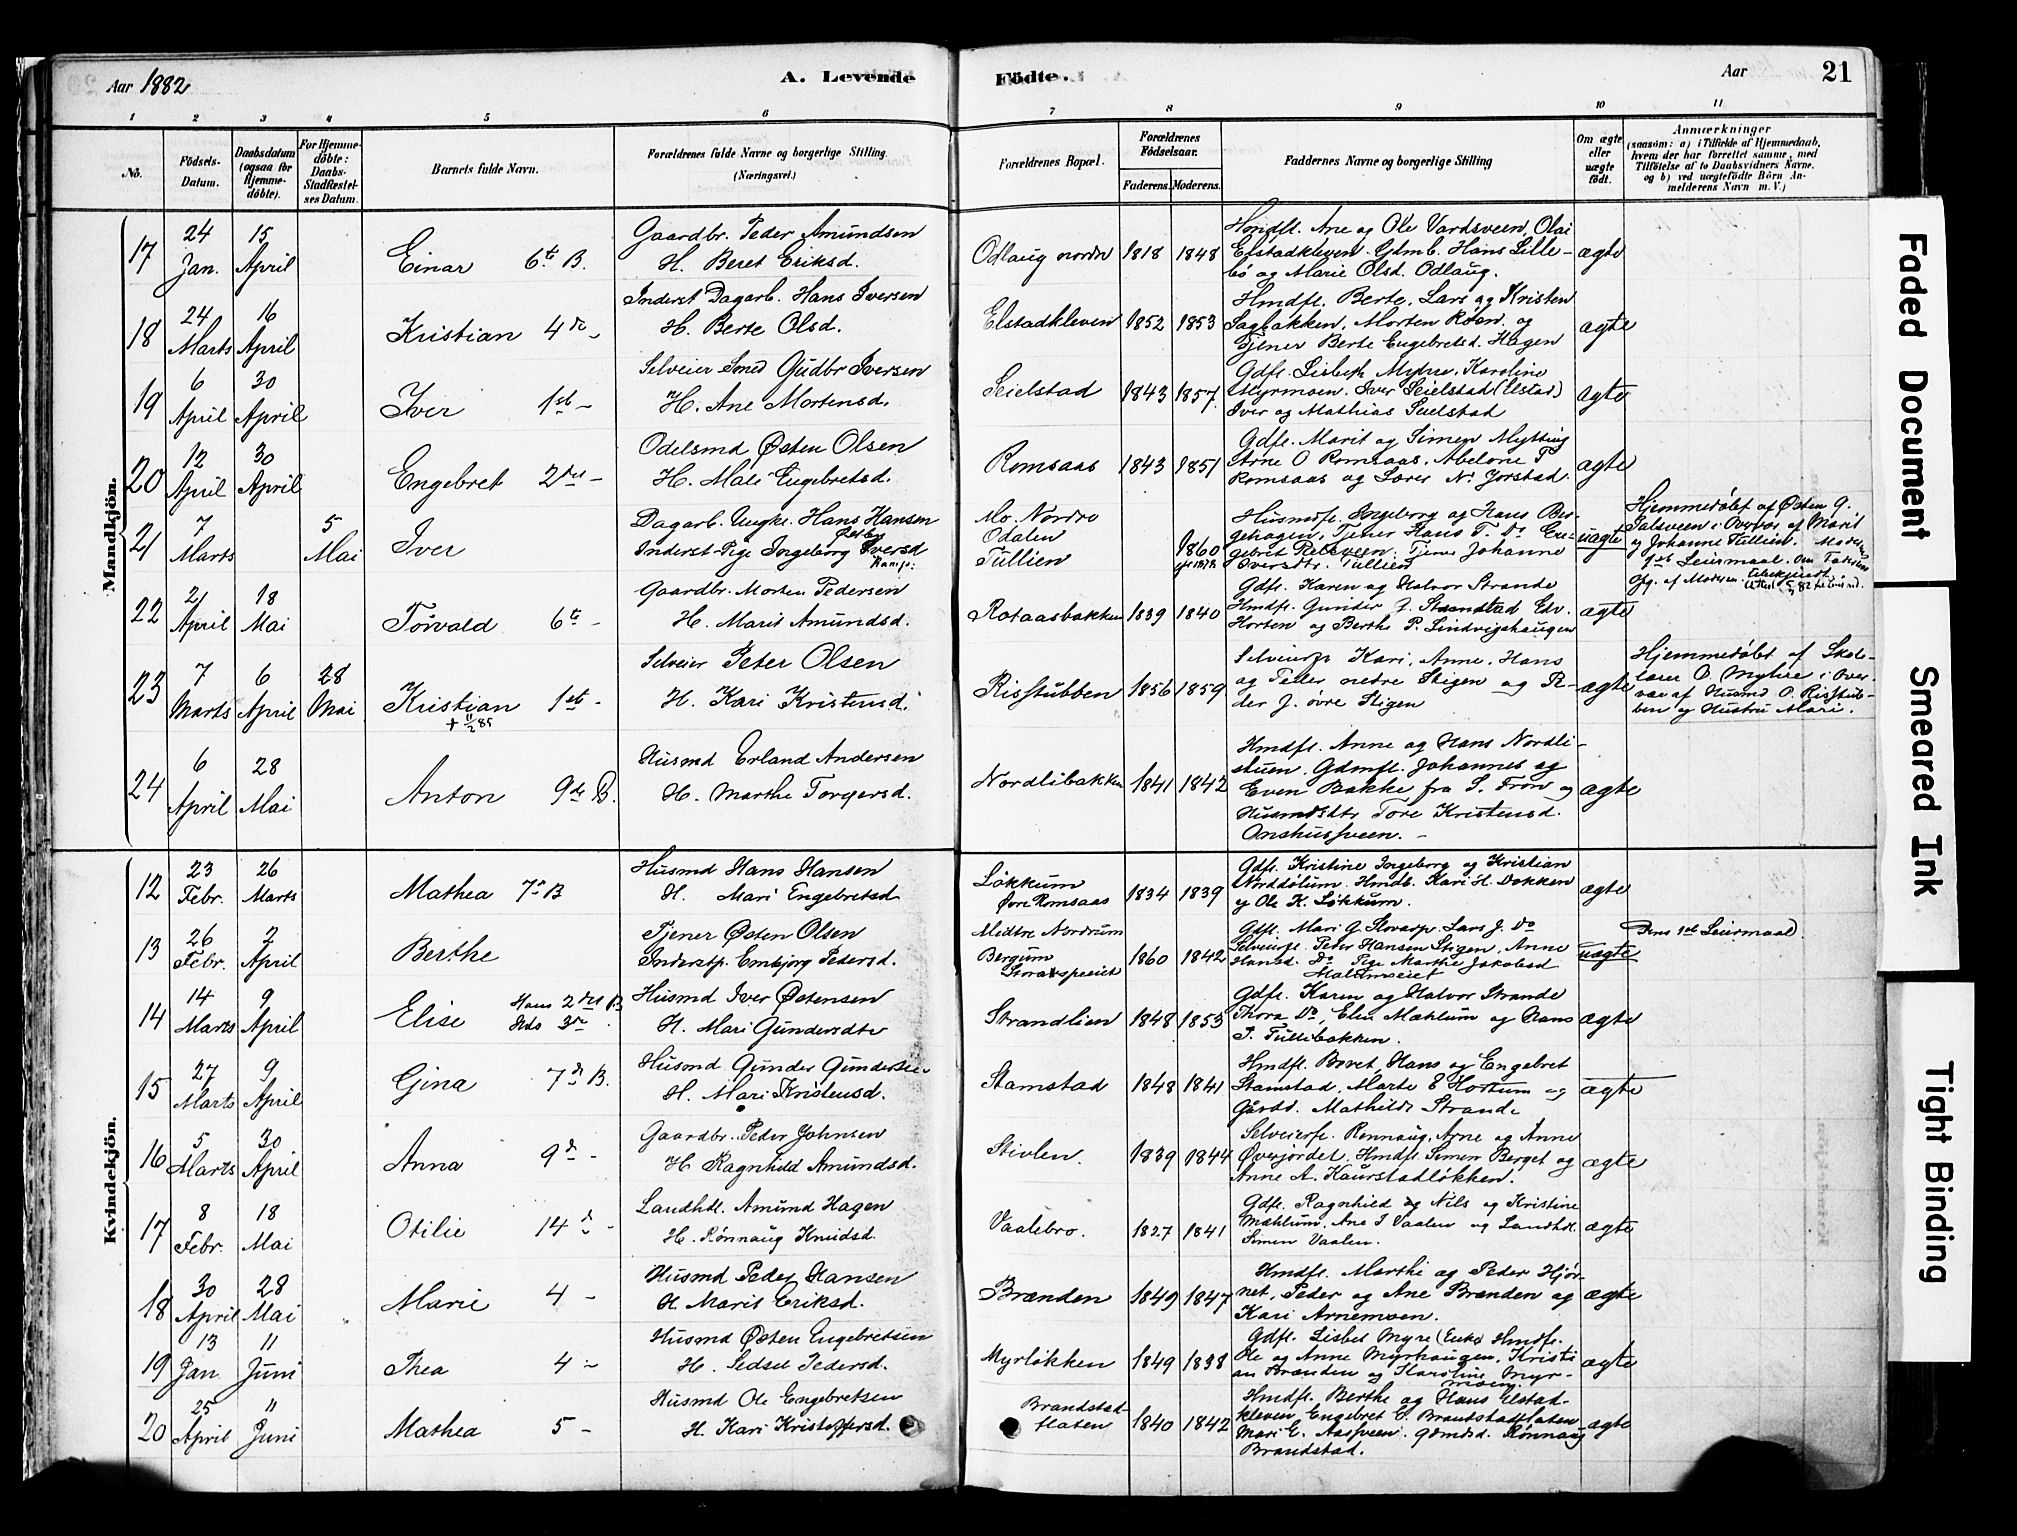 Aar 1882
A. Levende
Födte.
Aar
21
1 2 3 4 5 6 7 8 9 10 11
No.
Födsels-Datum.
Daabsdatum (ogsaa for Hjemme-döbte).
For Hjemme-döbte: Daabs-Stadfæstel-ses Datum.
Barnets fulde Navn.
Forældrenes fulde Navne og borgerlige Stilling.
(Næringsvei.)
Forældrenes Bopæl.
Forældrenes Födselsaar.
Faderens. Moderens.
Faddernes Navne og borgerlige Stilling
Om ægte eller uægte födt.
Anmærkninger
(saasom: a) i Tilfælde af Hjemmedaab,
hvem der har forrettet samme, med
Tilföielse af to Daabsvidners Navne.
og b) ved uægtefödte Börn An-
melderens Navn m. V.)
Mandkjön.
17 24 Jan. 15 April Einar 6te B.
Gaardbr. Peder Amundsen
H. Beret Eriksd.
Odlaug nordre 1818 1848
Hmdfl. Ane og Ole Vardsveen, Olai
Elstadkleven. Gdmb. Hans Lille-
bö og Marie Olsd. Odlaug.
ægte
18 24 Marts 16 April Kristian 4de -
Inderst Dagarb. Hans Iversen
H. Berte Olsd.
Elstadkleven 1852 1853
Hmdfl. Berte, Lars og Kristen
Sagbakken, Morten Roen og
Tjener Berte Engebretsd. Hagen
ægte
19 6 April 30 April Iver 1ste -
Selveier Smed Gudbr Iversen
H. Ane Mortensd.
Seielstad 1843 1857
Gdfl. Lisbeth Myhre, Karoline
Myrmoen, Iver Seielstad (Elstad)
Iver og Mathias Seielstad
ægte
20 12 April 30 April Engebret 2det -
Odelsmd Østen Olsen
H. Mari Engebretsd.
Romsaas 1843 1851
Gdfl. Marit og Simen Mytting
Arne O Romsaas, Abelone T
Romsaas og Lars N. Jorstad.
ægte
21 7 Marts 5 Mai Iver
Dagarb. Ungk. Hans Hansen
Inderst-Pige Ingeborg Iversd
Mo Nordre
Odalen
Tullien
1860
Husmdfl. Ingeborg og Hans Ber-
gehagen, Tjener Hans T. Do En-
gebret Releveen. Tjener Johanne
Iversdtr. Tullien
uægte
Hjemmedøbt af Østen G.
Falsveen i Overvær af Marit
og Johanne Tullien. Moderens
1ste Leiermaal. Om Faderen
Opg. af Moderen.
22 21 April 18 Mai Torvald 6te -
Gaardbr. Morten Pedersen
H. Marit Amundsd.
Rotaasbakken 1839 1840
Gdfl. Karen og Halvor Strande
Hmdfl. Gunder J. Stamstad Edv.
Horten og Berthe P. Lindvigshaugen
ægte
23 7 Marts 6 April 28 Mai Kristian 1ste -
+ 11/2 85
Selveier Peter Olsen
H. Kari Kristensd.
Risstubben 1856 1859
Selveierfl. Kari, Anne, Hans
og Peder nedre Stigen og Pe-
der J. øvre Stigen
ægte
Hjemmedøbt af Skole-
lærer O. Myhre i Over-
vær af Husmd O. Risstub-
ben og Hustru Mari.
24 6 April 28 Mai Anton 9de B.
Husmd Erland Andersen
H. Marthe Torgersd.
Nordlibakken 1841 1842
Hmdfl. Anne og Hans Nordli-
stuen. Gdmfl. Johannes og
Even Bakke fra S. Fron og
Husmdsdtr Tore Kristensd.
Onshussveen. -
ægte
Kvindekjön.
12 23 Febr. 26 Marts Mathea 7de B
Husmd Hans Hansen
H. Mari Engebretsd
Løkkum
Øvre Romsaas
1834 1839
Gdfl. Kristine Ingeborg og Kristian
Norddølum. Hmdb. Kari H. Dokken
og Ole K. Løkkum.
ægte
13 26 Febr. 2 April Berthe
Tjener Østen Olsen
Inderstp. Embjørg Pedersd.
Midtre Nordrum
Bergum
1860 1842
Gdfl. Mari G Storarp. Lars J. Do
Selveierfl. Peder Hansen Stigen, Anne
Hansd. Do Pige Marthe Jakobsd
uægte
Dens 1ste Leiermaal
14 14 Marts 9 April Elise Hans 2det B
Hds 3de
Husmd Iver Østensen
H. Mari Gundersdtr
Strandlien 1848 1853
Gdfl. Karen og Halvor Strande
Thora Do, Elin Mæhlum og Hans
P. Tullibakken.
ægte
15 27 Marts 9 April Gina 7de B.
Husmd Gunder Gundersen
H. Mari Kristensd.
Stamstad 1848 1841
Hmdfl. Beret, Hans og Engebret
Stamstad, Marte E Hortum og
Mathilde Strande
ægte
16 5 Marts 30 April Anna 9de -
Gaardbr. Peder Johnsen
H Ragnhild Amundsd.
Stivlen. 1839 1844
Selveierfl. Rønnaug, Arne og Anne
Øverjordet, Hmdfl. Simen Berget og
Anne A. Kaurstadløkken.
ægte
17 8 Febr. 18 Mai Otilie 14de -
Landhdl. Amund Hagen
H. Rønnaug Knudsd.
Vaalebro. 1827 1841
Gdfl. Ragnhild og Nils og Kristine
Mæhlum. Ane I Vaalen og Landhdl.
Simen Vaalen.
ægte
18 30 April 28 Mai Marie 4 -
Husmd Peder Hansen
H. Marit Eriksd.
Brænden 1849 1847
Hmdfl. Marthe og Peder Hjør-
net, Peder og Ane Brænden og
Kari Arnemoen.
ægte
19 13 Jan 11 Juni Thea 4 -
Husmd Østen Engebretsen
H. Sidsel Pedersd.
Myrløkken 1849 1838
Gdfl. Lisbet Myre (Enke) Hmdfl.
Ole og Anne Myrhaugen, Kristi
an Brænden og Karoline Myr-
moen.
ægte
20 25 April 11 Juni Mathea 5 -
Husmd Ole Engebretsen
H. Kari Kristoffersd.
Brandstad-
flaten 1840 1842
Hmdfl. Berthe og Hans Elstad-
kleven, Engebret E. Brandstadflaten
Mari E. Aasveen. Gdmdsd. Rønnaug
Brandstad.
ægte
Faded Document
Smeared Ink
Tight Binding